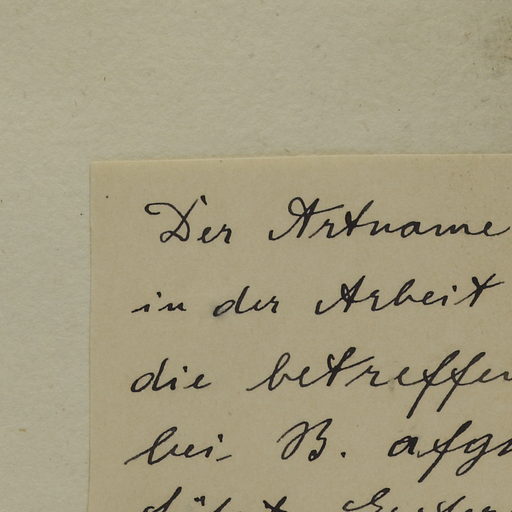 Der Artname
in der Arbeit
die betreffen
bei B. afg